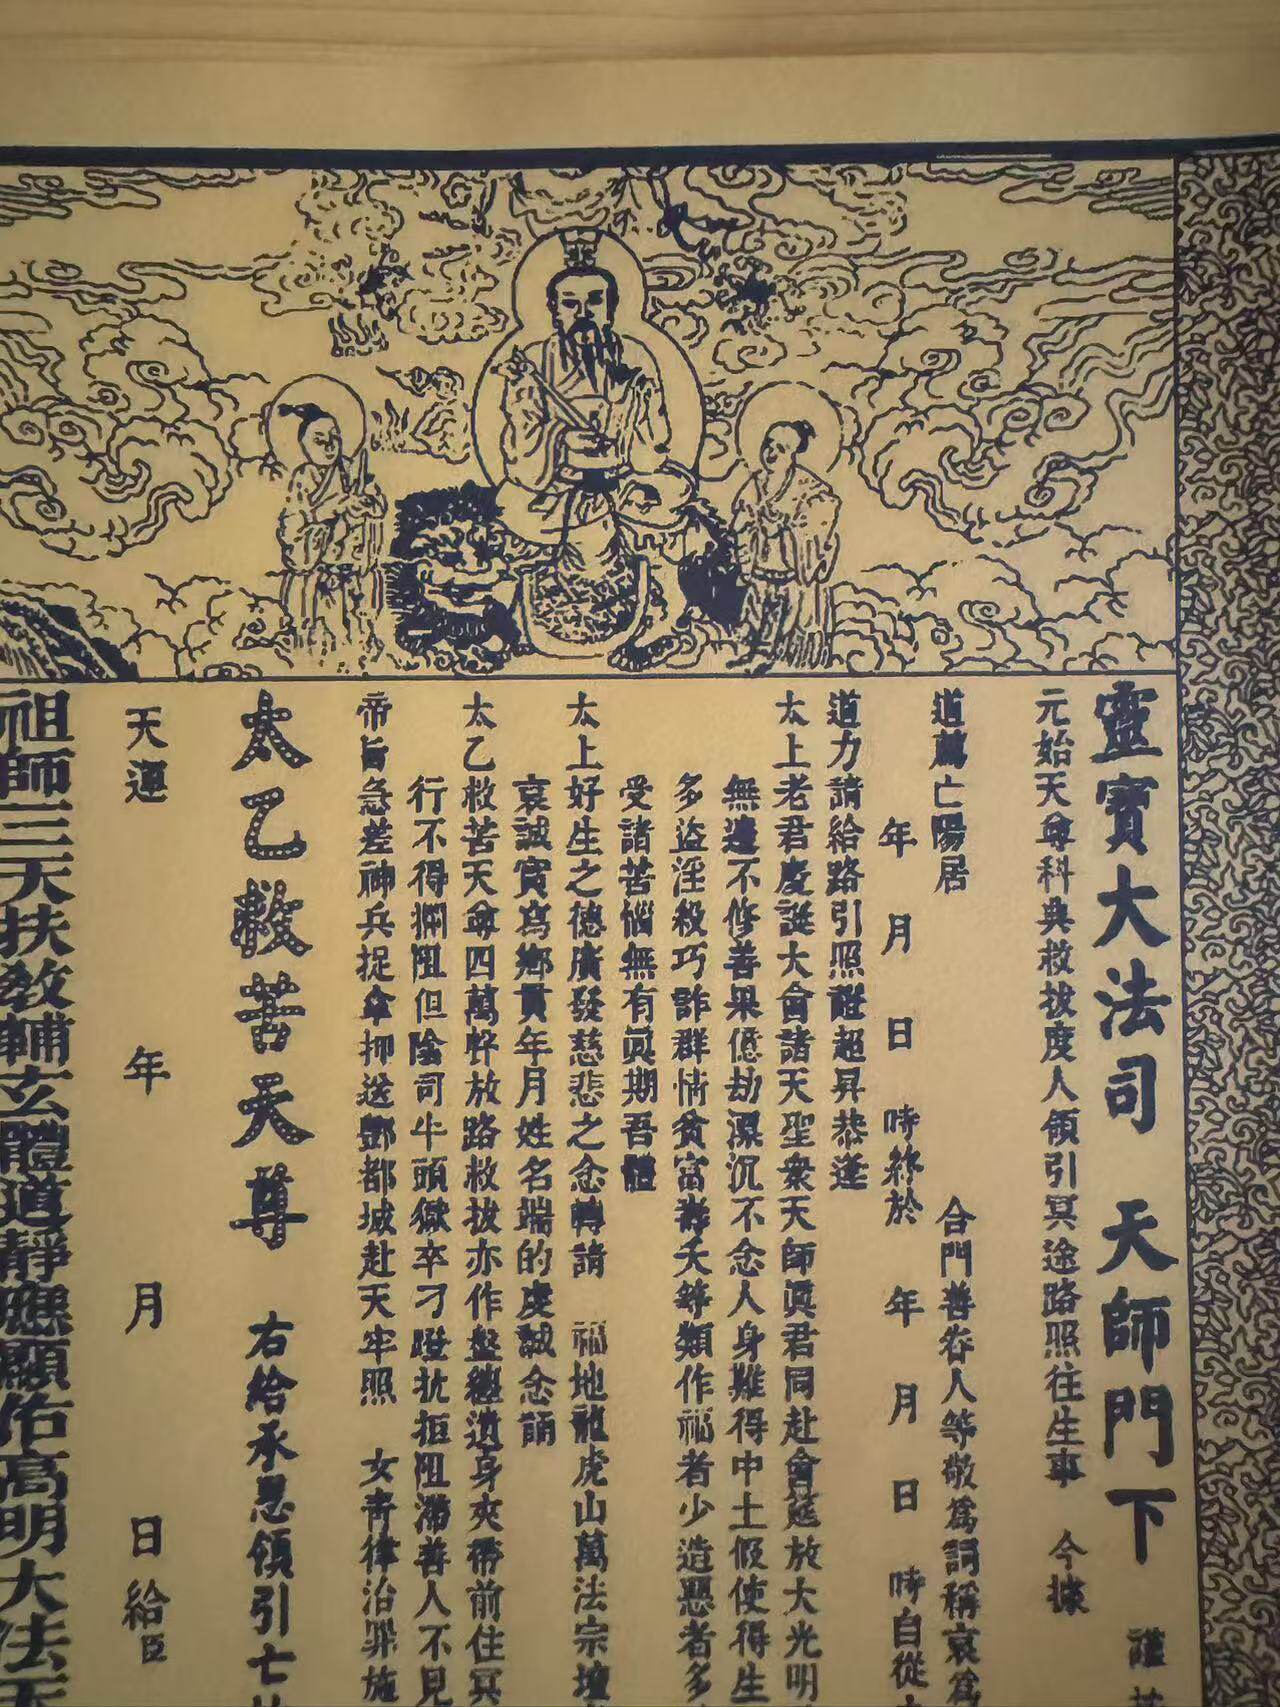 靈寶大法司 天師門下 謹
元始天尊科典救拔度人領引冥途路照往生事 今據
道薦亡陽居 合門善眷人等敬為詞稱哀為
年 月 日 時終於 年 月 日 時自從
道力請給路引照證超昇恭逢
太上老君慶誕大會諸天聖眾天師眞君同赴會筵放大光明
無邊不修善果億劫深沉不念人身難得中土假使得生
多盜淫殺巧詐群情貧富壽夭等類作福者少造惡者多
受諸苦惱無有眞期吾體
太上好生之德廣發慈悲之念轉請 福地龍虎山萬法宗壇
哀誠實寫鄉貫年月姓名端的虔誠念誦
太乙救苦天尊四萬 放路救拔亦作盤纏道身夾帶前往冥
行不得攔阻但陰司牛頭獄卒刁蹬抗拒阻滯善人不見
帝旨急差神兵捉拿押送酆都城赴天牢照 女青律治罪施
太乙救苦天尊 右給承恩領引亡
天運 年 月 日給 臣
祖師三天扶教輔玄體道靜應顯佑高明大法天